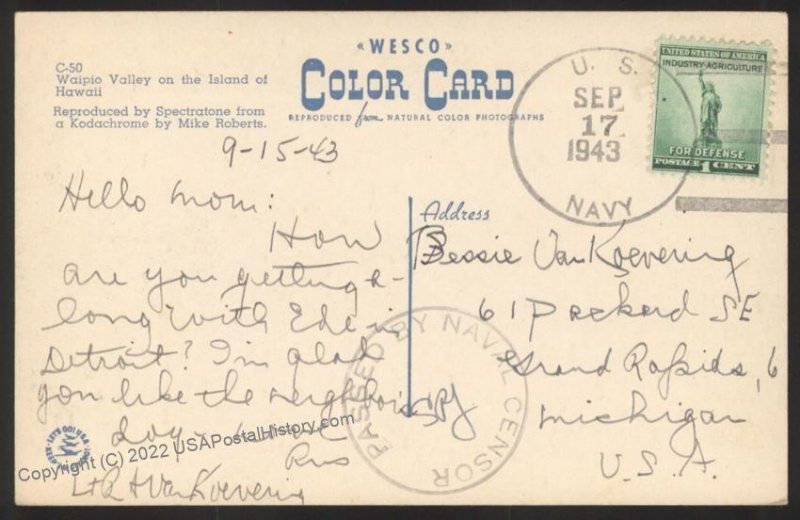 C-50
Waipio Valley on the Island of
Hawaii
Reproduced by Spectratone from
a Kodachrome by Mike Roberts.
«WESCO»
COLOR CARD
REPRODUCED from NATURAL COLOR PHOTOGRAPHS
U. S.
SEP
17
1943
NAVY
UNITED STATES OF AMERICA
INDUSTRY·AGRICULTURE
FOR DEFENSE
POSTAGE 1 CENT
9-15-43
Hello Mom:
How
are you getting a-
long with Ede in
Detroit? I'm glad
you like the neighbors
dog. Love
Russ
Lt R H VanKoevering
Address
Bessie VanKoevering
61 Packard SE
Grand Rapids, 6
Michigan
U.S.A.
PASSED BY NAVAL CENSOR
Copyright (C) 2022 USAPostalHistory.com